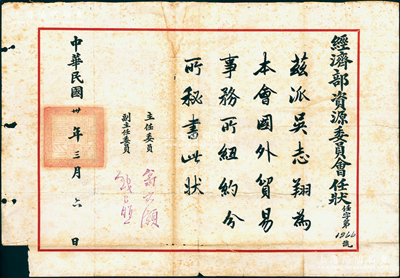 經濟部資源委員會任狀
任字第1966號
茲派吳志翔為
本會國外貿易
事務所紐約分
所秘書此狀
主任委員 翁文灝
副主任委員 錢昌照
中華民國卅年三月六日